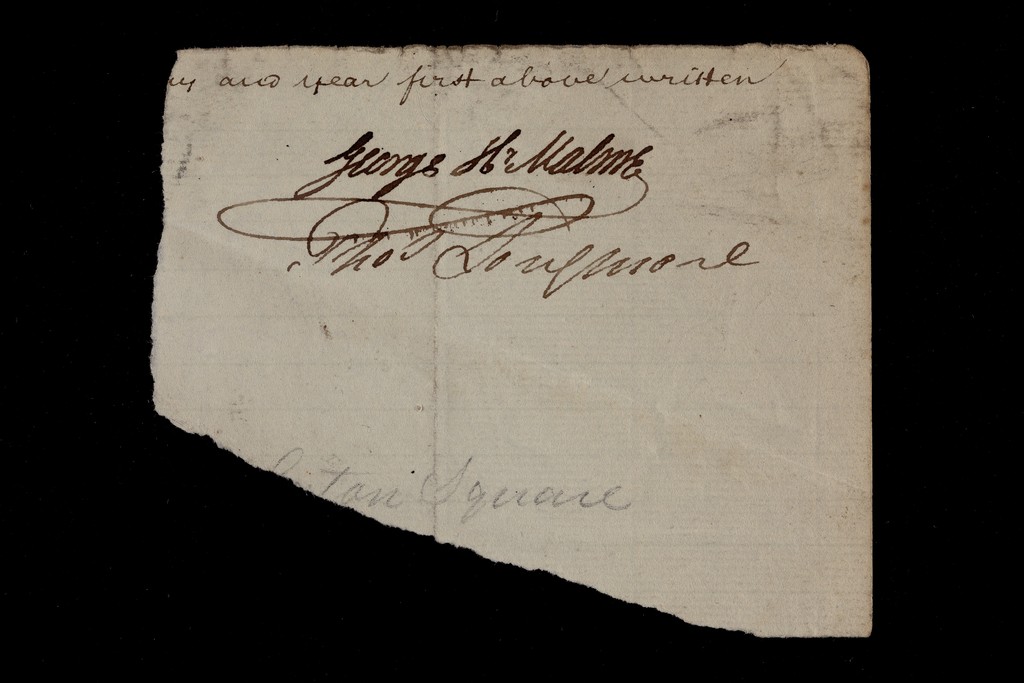 ay and year first above written
George Hy Malme
Thos Longmore
ton Square